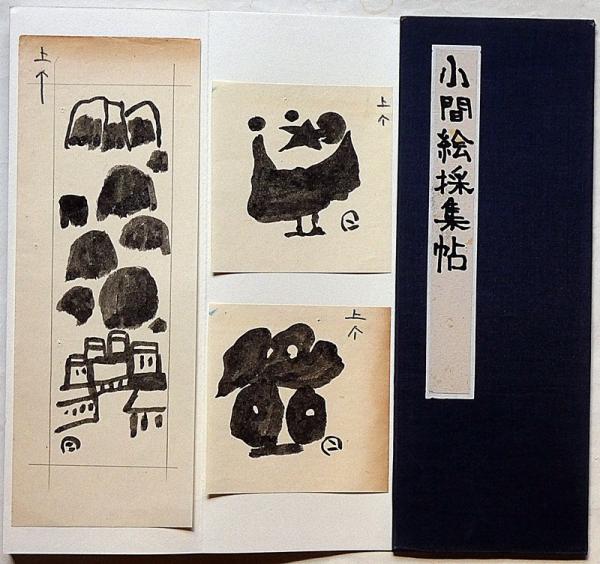 小間絵採集帖
上
上
上